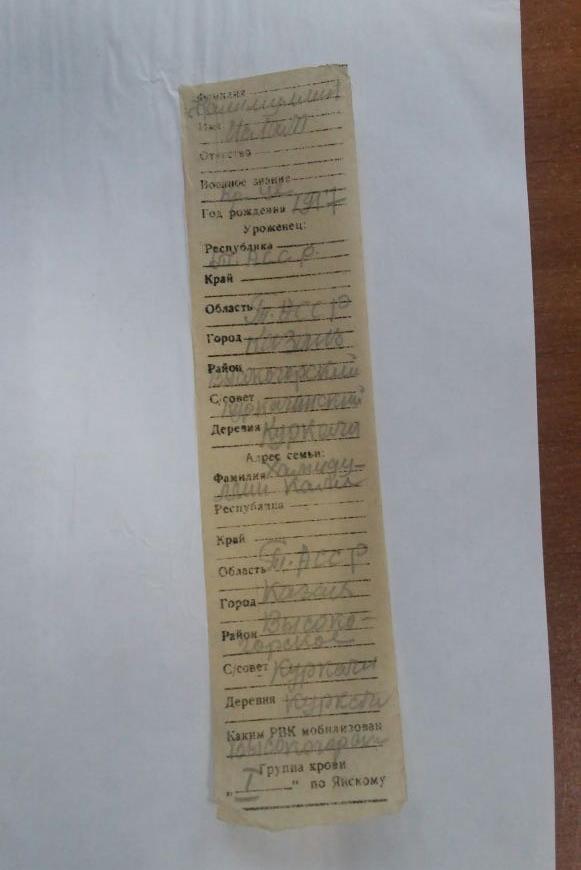 Фамилия
Имя
Отчество
Военное звание
Год рождения 1917
Уроженец:
Республика
Т. АССР
Край
Область Т. АССР
Город Казань
Район
Высокогорский
С/совет
Куркачинский
Деревня Куркачи
Адрес семьи:
Фамилия Хамиду-
ллин
Республика
Край
Область Т. АССР
Город Казань
Район Высоко-
горское
С/совет Куркачи
Деревня Куркачи
Каким РВК мобилизован
Группа крови
„ I " по Янскому